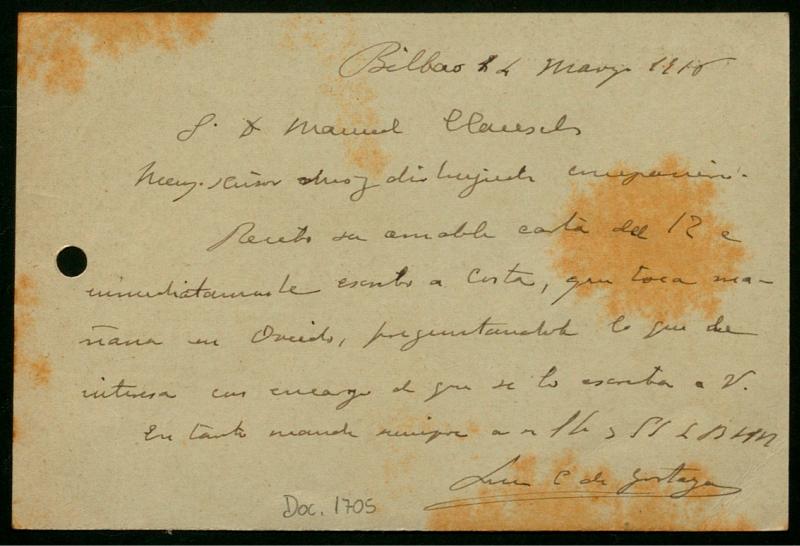 Bilbao 14 Marzo 1918
S. D. Manuel Clausels
Muy señor mío y distinguido compañero:
Recibo su amable carta del 12 e
inmediatamente escribo a Costa, que toca ma-
ñana en Oviedo, preguntandole lo que le
interesa con encargo de que se lo escriba a V.
En tanto mande siempre a su
C. de Gortazar
Doc. 1705